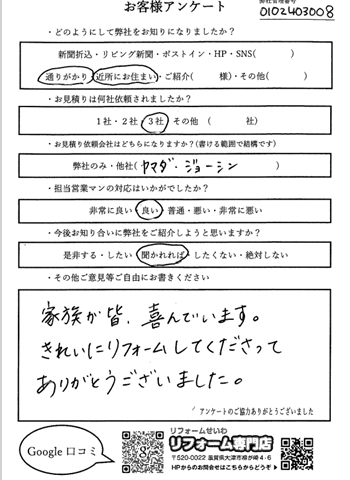 お客様アンケート
弊社管理番号
0102403008
・どのようにして弊社をお知りになりましたか？
新聞折込・リビング新聞・ポストイン・HP・SNS(　　　)
通りがかり・近所にお住まい・ご紹介(　　様)・その他(　　)
・お見積りは何社依頼されましたか？
1社・2社・3社 その他 (　　　社)
・お見積り依頼会社はどちらになりますか？(書ける範囲で結構です)
弊社のみ・他社(ヤマダ・ジョーシン)
・担当営業マンの対応はいかがでしたか？
非常に良い・良い・普通・悪い・非常に悪い
・今後お知り合いに弊社をご紹介しようと思いますか？
是非する・したい・聞かれれば・したくない・絶対しない
・その他ご意見等ご自由にお書きください
家族が皆、喜んでいます。
きれいにリフォームしてくださって
ありがとうございました。
アンケートのご協力ありがとうございました
Google 口コミ
リフォームせいわ
リフォーム専門店
〒520-0022 滋賀県大津市柳が崎4-6
HPからのお問合せはこちらからどうぞ